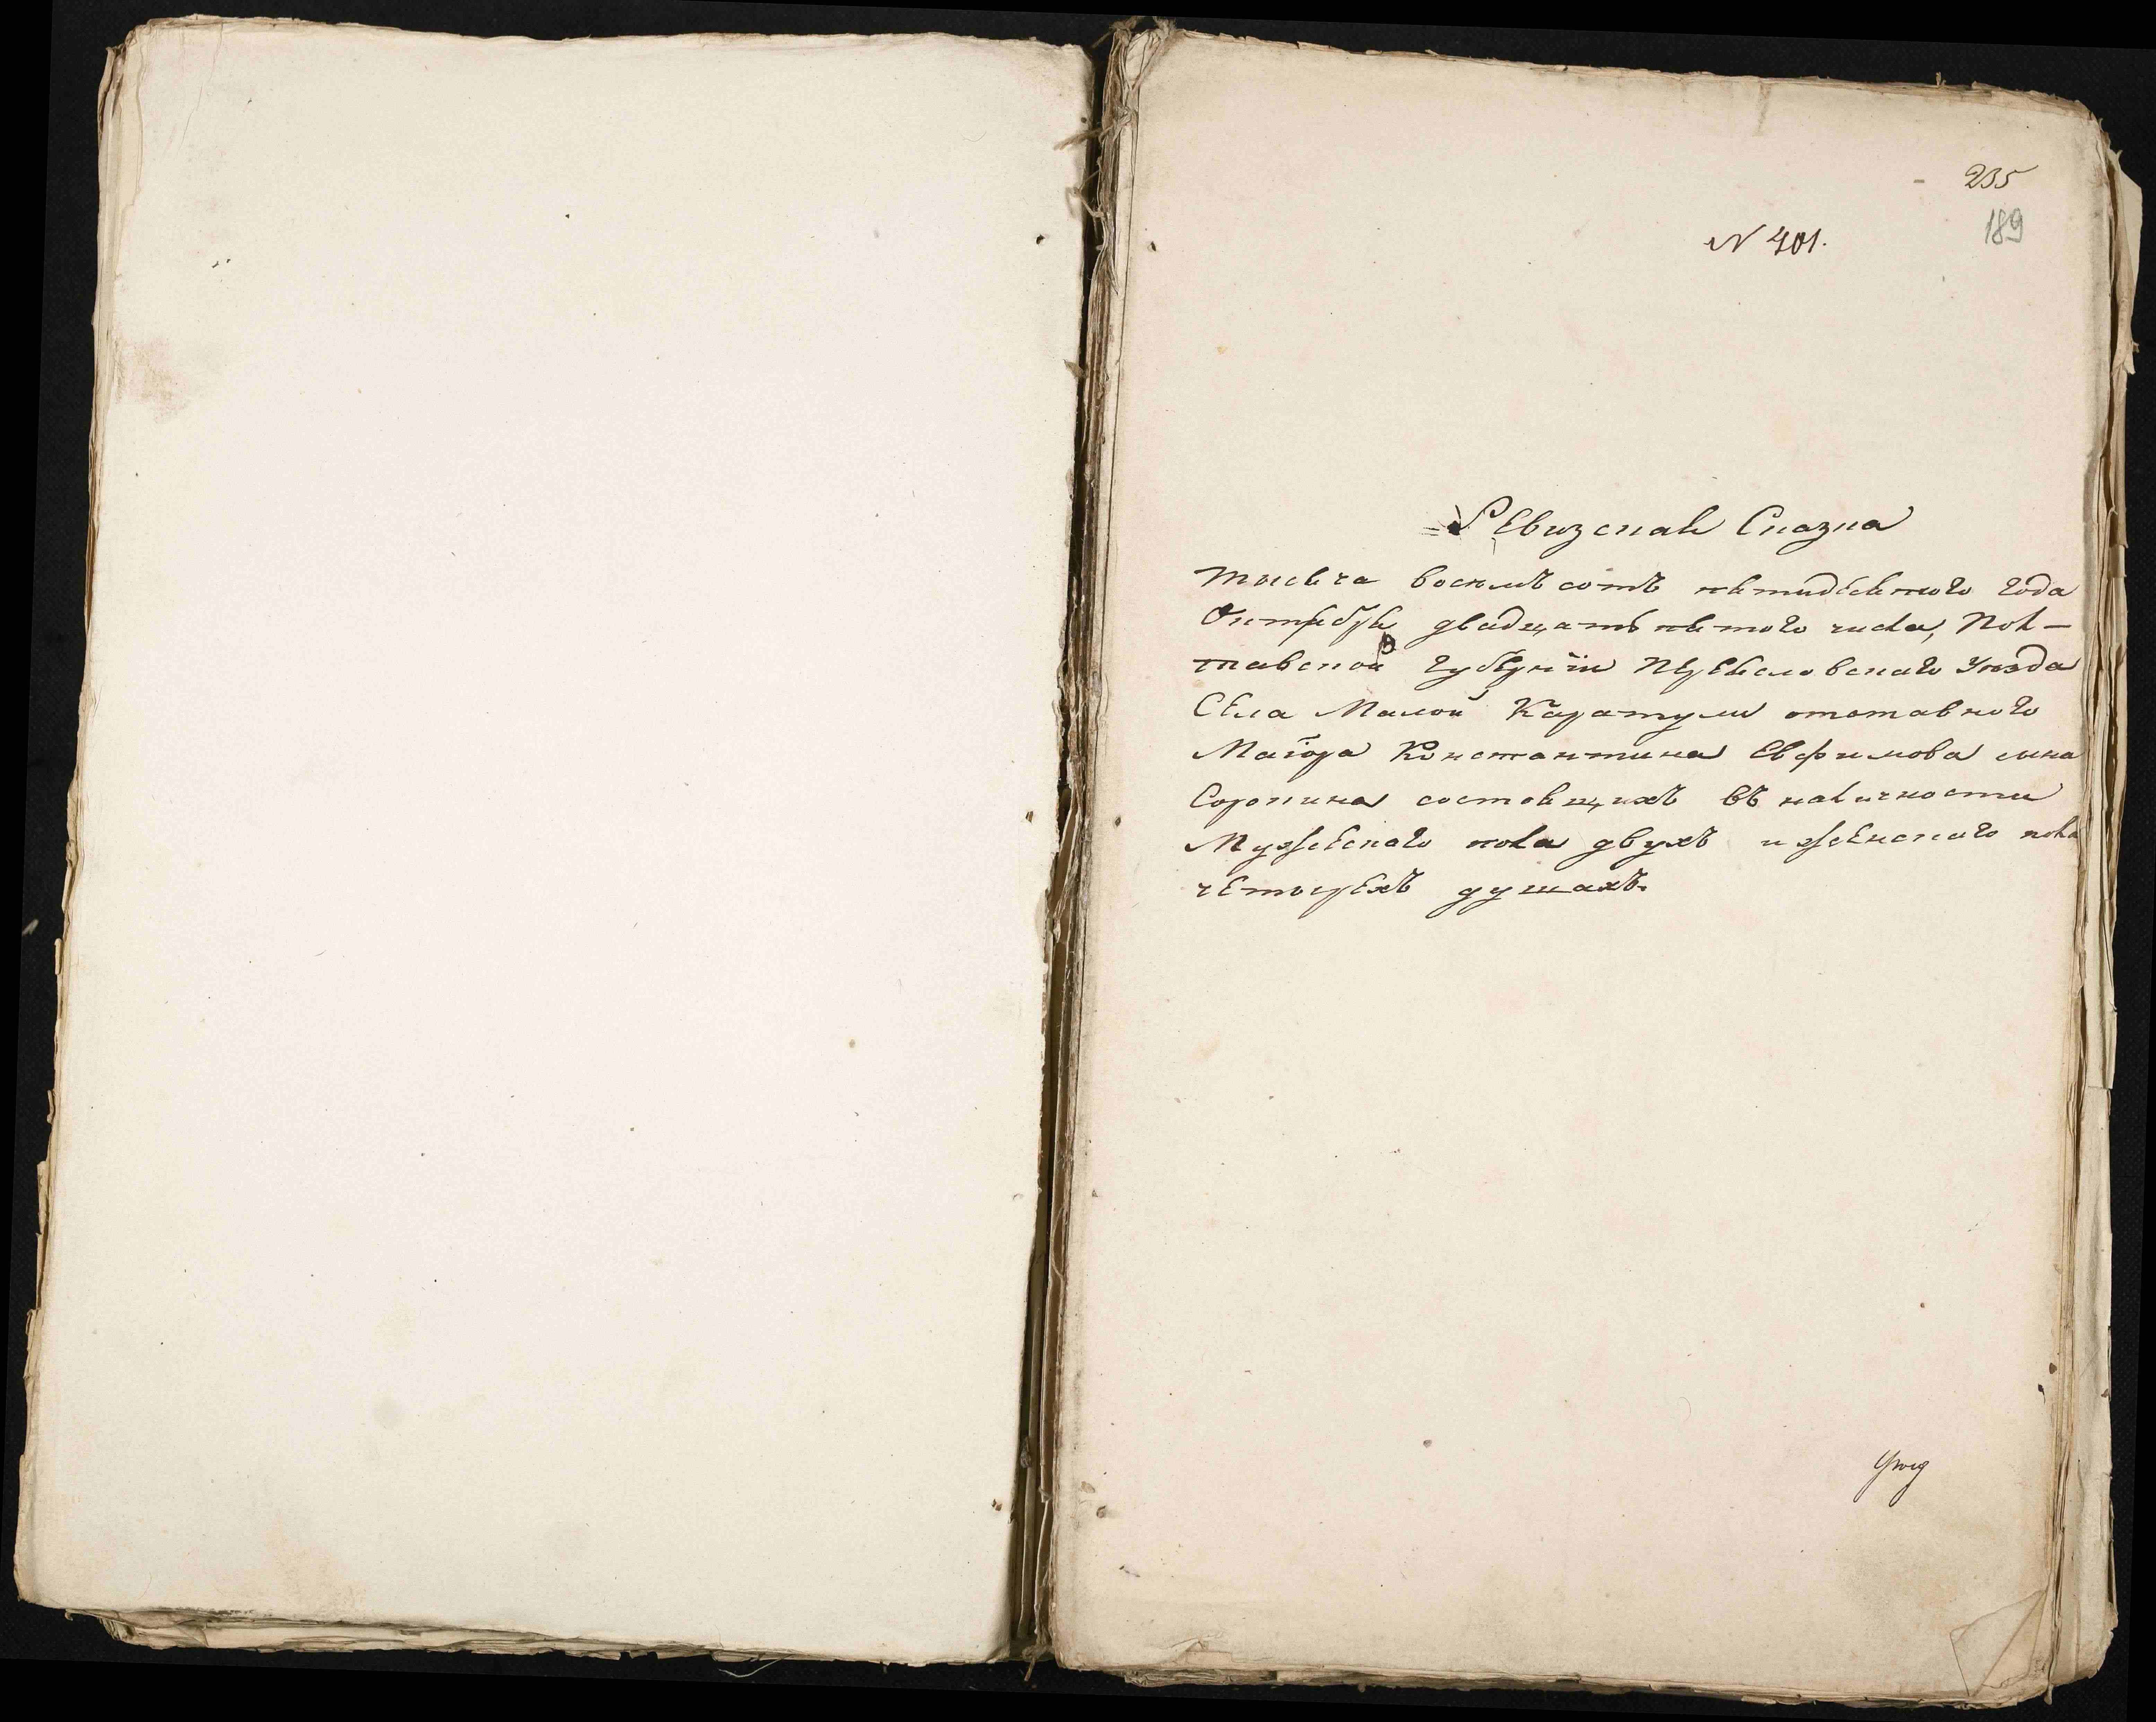 235
189
N 401.
Ревизская Сказка
тысяча восемъ сотъ пятидесятого года
Октября двадцать пятого числа, Пол-
тавской Губерніи Переясловскаго Уезда
Села Малой Каратули отставного
Маіора Константина Евфимова сына
Сорокина состоящихъ въ наличности
Мужескаго пола двухъ и женскаго пола
четырехъ душахъ.